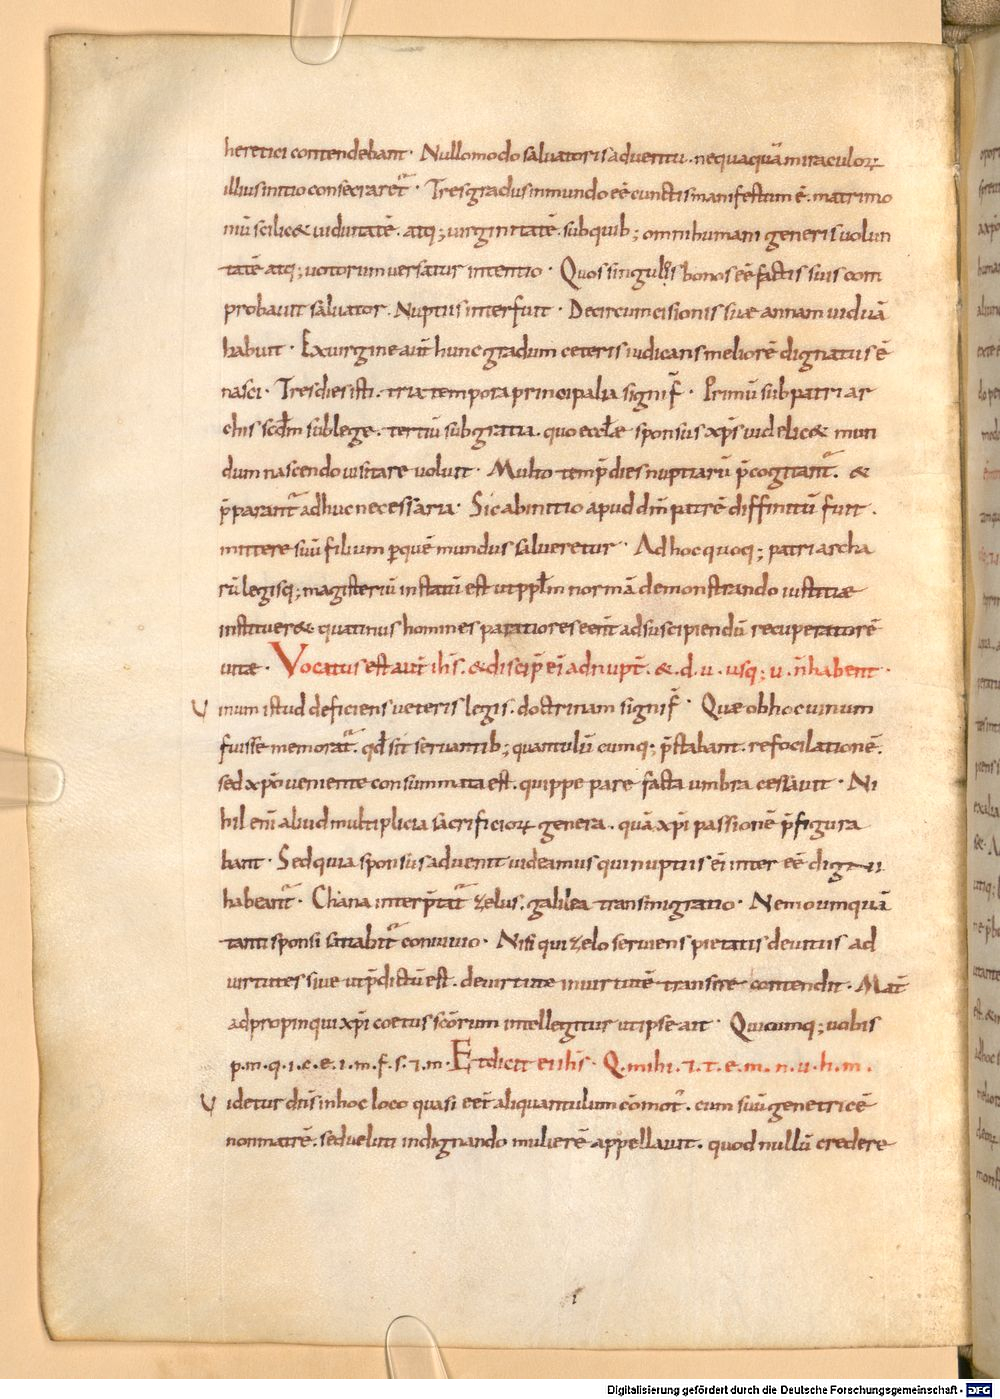 heretici contendebant · Nullomodo saluatoris aduentu . nequaquā miraculoꝝ
illius initio consecraret᷑ · Tres gradus in mundo eē cunctis manifestum ē . matrimo
niū scilic& uiduitatē . atq; uirginitatē . sub quib; omni humani generis uolun
tatē atq; uotorum uersatur intentio · Quos singulis bonos eē factis suis com
probauit saluator . Nuptiis interfuit · De circumcisionis suæ annam uiduā
habuit · Ex uirgine aūt hunc gradum ceteris iudicans meliorē dignatus ē
nasci · Tres dies isti . tria tempora principalia signif̄ · Primū sub patriar
chis scd̄m sub lege . tertiū sub gratia . quo eccl̄æ sponsus xp̄s uidelic& mun
dum nascendo uisitare uoluit · Multo temp̄ dies nuptiarū p̄cogitant᷑ . &
p̄parant᷑ adhuc necessaria · Sic ab initio apud dm̄ patrē diffinitū fuit .
mittere suū filium ꝑ quē mundus salueretur · Ad hoc quoq; patriarcha
rū legisq; magisteriū instaūi est ut ppl̄m normā demonstrando iustitiæ
instituer& quatinus homines paratiores eēnt ad suscipiendū recuperatorē
uitæ · Vocatus est aūt ih̄s . & discip̄ ei ad nupt̄ . & . d . u . usq; u . n̄ habent ·
U inum istud deficiens ueteris legis . doctrinam signif̄ · Quæ ob hoc uinum
fuisse memorat᷑ . qđ sit seruantib; quantulū cumq; p̄stabant . refocilationē .
sed xp̄o ueniente consummata est . quippe pare facta umbra cessauit · Ni
hil eni᷑ aliud multiplicia sacrificioꝝ genera . quā xp̄i passionē p̄figura
bant · Sed quia sponsus aduenit uideamus qui nuptiis ei᷑ inter eē digni
habeant᷑ · Chana interp̄tat᷑ zelus . galilea transmigratio · Nemo umquā
tanti sponsi satiabit᷑ conuiuio · Nisi qui zelo seruens pietatis de uitiis ad
uirtutes siue ut p̄dictū est . de uirtute in uirtutē transire contendit · Mat̄
ad propinqui xp̄i coetus scōrum intellegitur ut ipse ait · Quicumq; uobis
p . m . q . i . c . e . i . m . f . s . ⁊ . m . Et dicit ei ih̄s · Q . mihi . ⁊ . t . e . m . n . u . h . m .
U idetur dn̄s in hoc loco quasi eēt aliquantulum cōmot᷑ . cum suū genetricē
non matrē . sed ueluti indignando mulierē appellauit . quod nullū credere
Digitalisierung gefördert durch die Deutsche Forschungsgemeinschaft - DFG